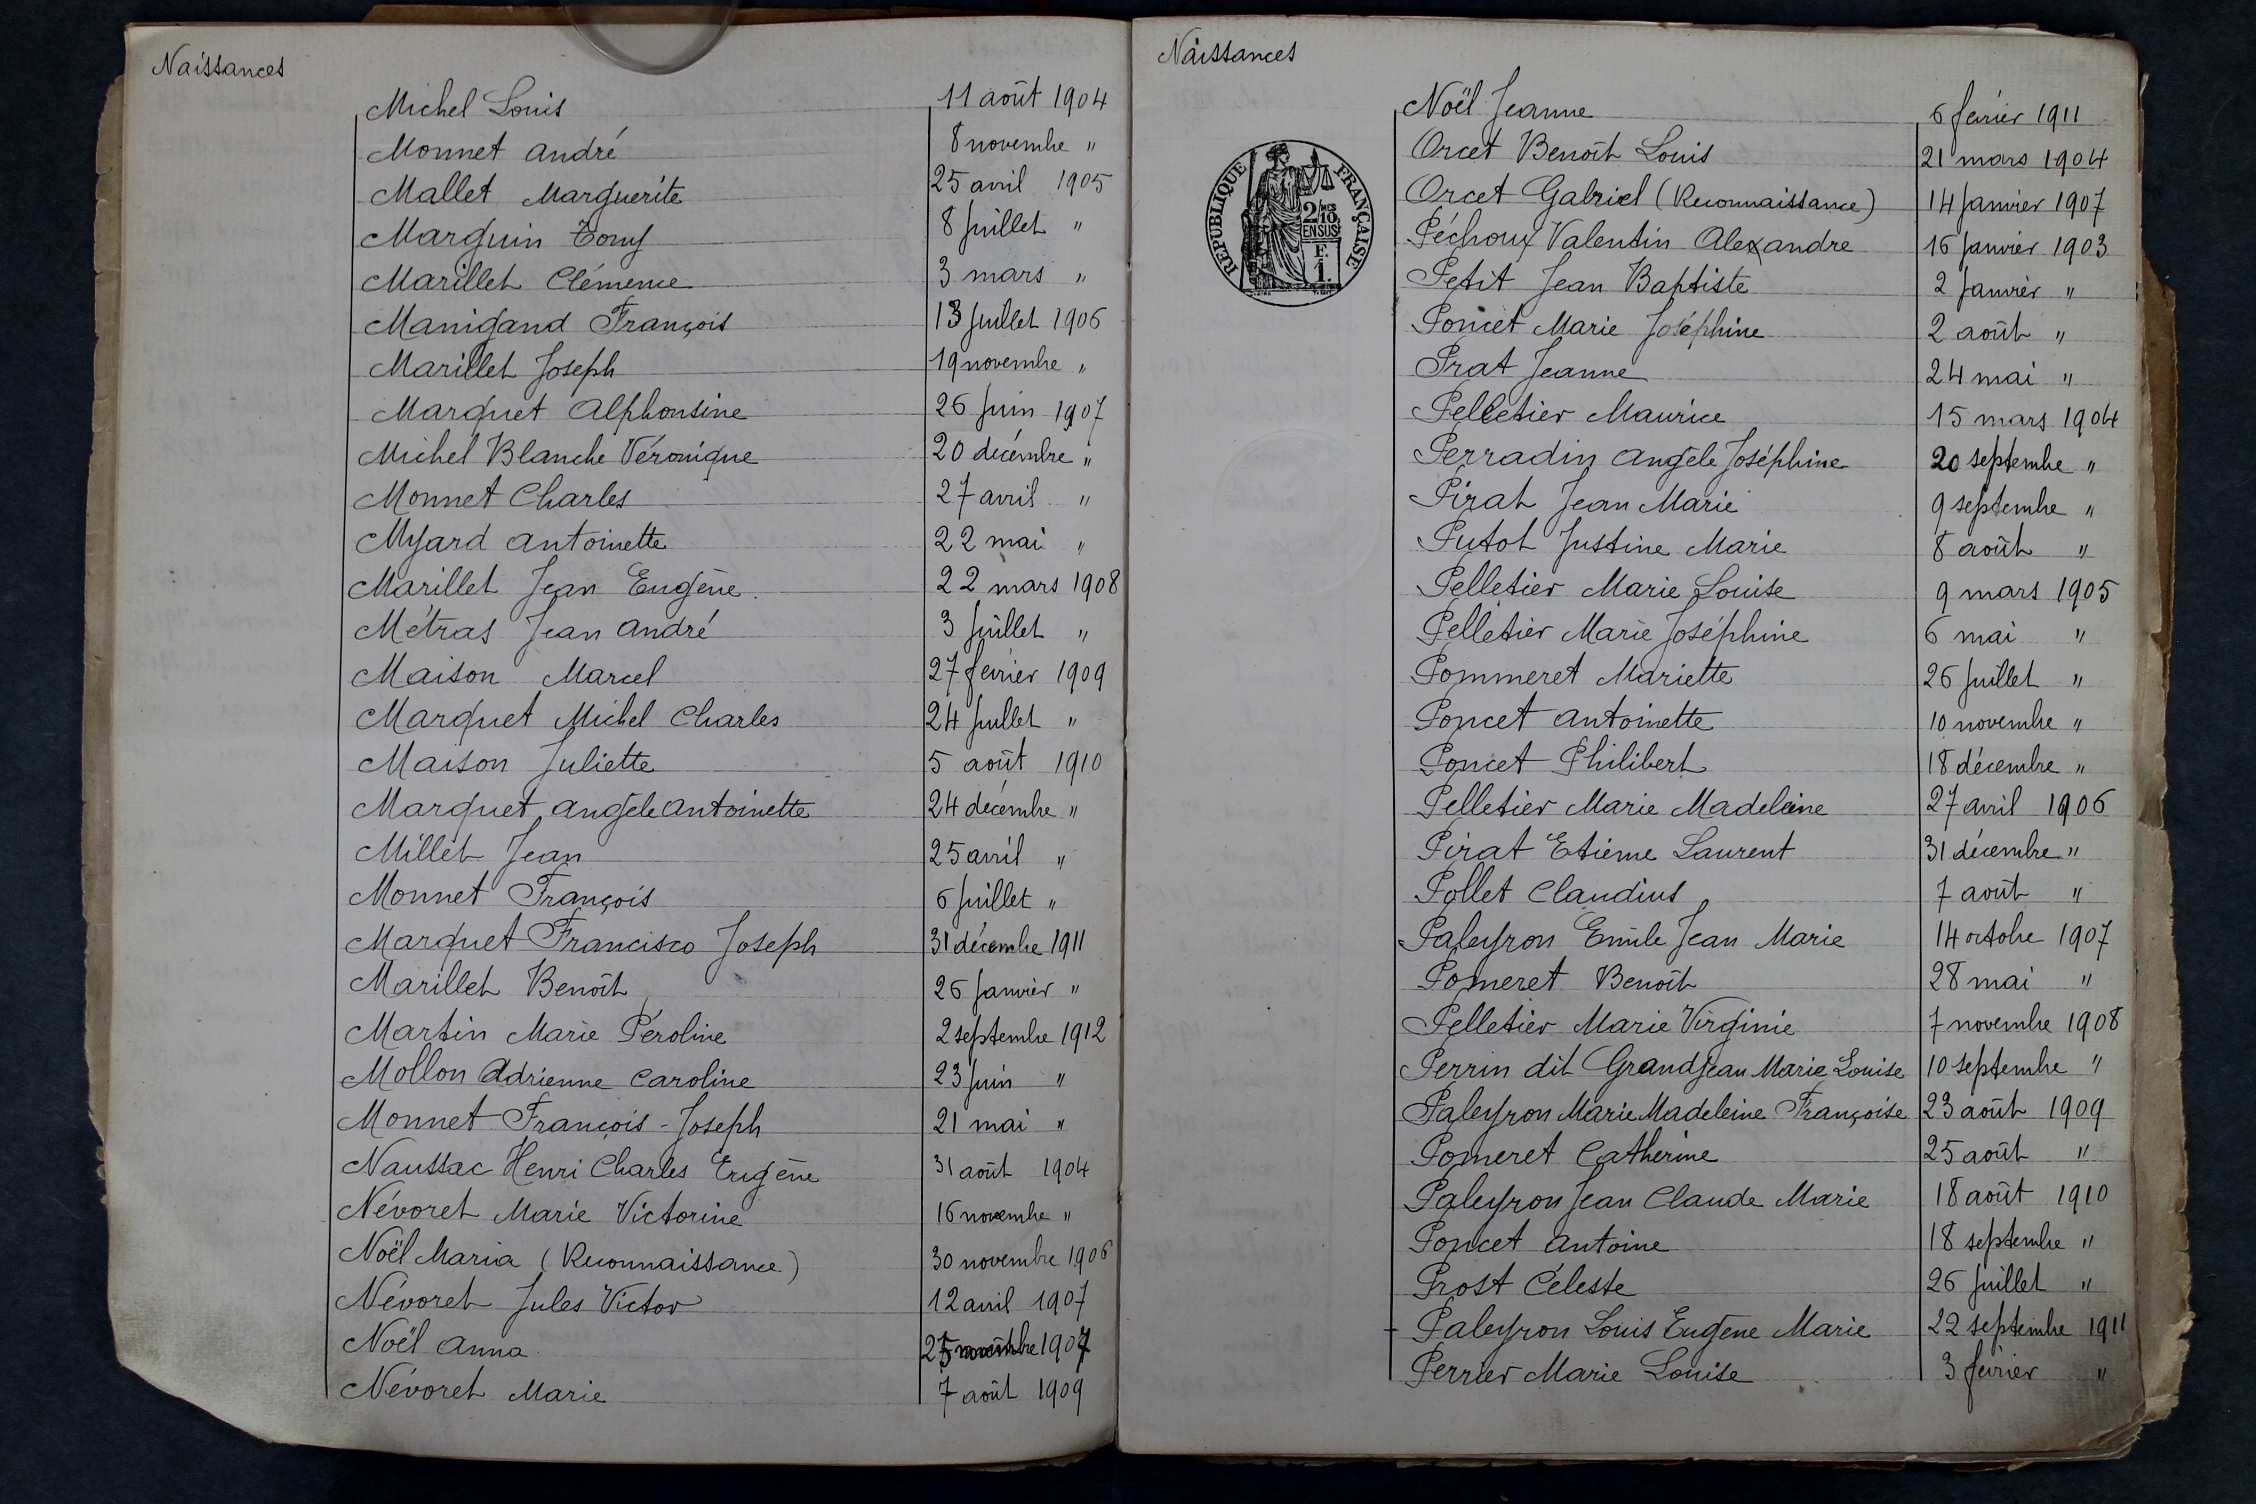 Naissances
Michel Louis 11 août 1904
Monnet André 8 novembre "
Mallet Marguerite 25 avril 1905
Marguin Tony 8 Juillet "
Marillet Clémence 3 mars "
Manigand François 13 Juillet 1906
Marillet Joseph 19 novembre "
Marquet Alphonsine 26 Juin 1907
Michel Blanche Véronique 20 décembre "
Monnet Charles 27 avril "
Myard Antoinette 22 mai "
Marillet Jean Eugène 22 mars 1908
Métras Jean André 3 Juillet "
Maison Marcel 27 février 1909
Marquet Michel Charles 24 Juillet "
Maison Juliette 5 août 1910
Marquet Angèle Antoinette 24 décembre "
Millet Jean 25 avril "
Monnet François 6 Juillet "
Marquet Francisco Joseph 31 décembre 1911
Marillet Benoît 26 Janvier "
Martin Marie Péroline 2 septembre 1912
Mollon Adrienne Caroline 23 Juin "
Monnet François-Joseph 21 mai "
Naussac Henri Charles Eugène 31 août 1904
Névoret Marie Victorine 16 novembre "
Noël Maria (Reconnaissance) 30 novembre 1906
Névoret Jules Victor 12 avril 1907
Noël Anna 1907
Névoret Marie 7 août 1909
Naissances
RÉPUBLIQUE FRANÇAISE
2/10 MES
EN SUS
F.
1.
Noël Jeanne 6 février 1911
Orcet Benoît Louis 21 mars 1904
Orcet Gabriel (Reconnaissance) 14 Janvier 1907
Péchoux Valentin Alexandre 16 Janvier 1903
Petit Jean Baptiste 2 Janvier "
Poncet Marie Joséphine 2 août "
Prat Jeanne 24 mai "
Pelletier Maurice 15 mars 1904
Perradin Angèle Joséphine 20 septembre "
Pirat Jean Marie 9 septembre "
Putot Justine Marie 8 août "
Pelletier Marie Louise 9 mars 1905
Pelletier Marie Joséphine 6 mai "
Pommeret Mariette 26 Juillet "
Poncet Antoinette 10 novembre "
Poncet Philibert 18 décembre "
Pelletier Marie Madeleine 27 avril 1906
Pirat Etienne Laurent 31 décembre "
Pollet Claudius 7 août "
Paleyron Emile Jean Marie 14 octobre 1907
Pomeret Benoît 28 mai "
Pelletier Marie Virginie 7 novembre 1908
Perrin dit Grandjean Marie Louise 10 septembre "
Paleyron Marie Madeleine Françoise 23 août 1909
Pomeret Catherine 25 août "
Paleyron Jean Claude Marie 18 août 1910
Poncet Antoine 18 septembre "
Prost Céleste 26 Juillet "
Paleyron Louis Eugène Marie 22 septembre 1911
Perrier Marie Louise 3 février "